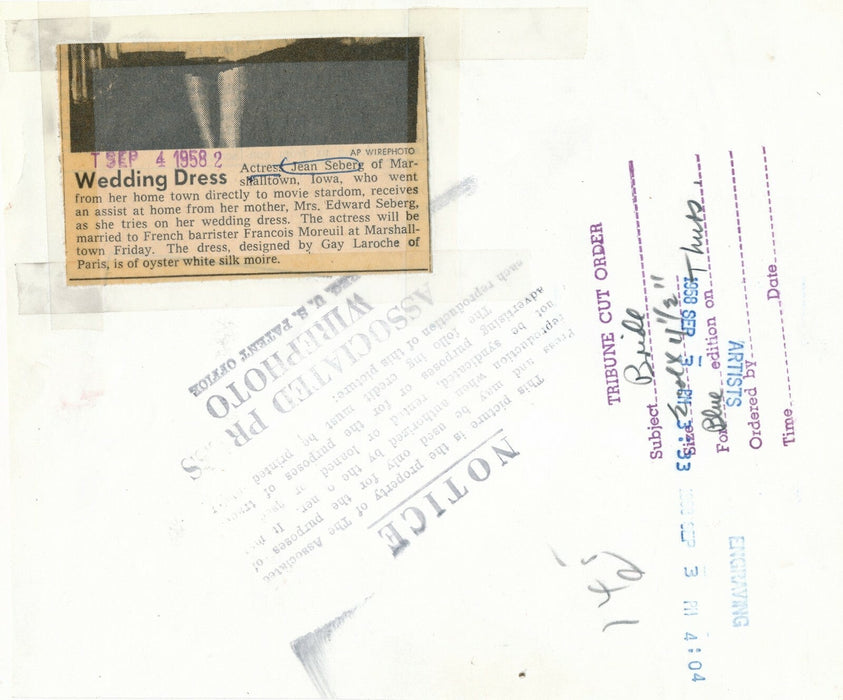 AP WIREPHOTO
T SEP 4 1958 2
Wedding Dress Actress Jean Seberg of Mar-
shalltown, Iowa, who went
from her home town directly to movie stardom, receives
an assist at home from her mother, Mrs. Edward Seberg,
as she tries on her wedding dress. The actress will be
married to French barrister Francois Moreuil at Marshall-
town Friday. The dress, designed by Gay Laroche of
Paris, is of oyster white silk moire.
NOTICE
This picture is the property of The Associated
Press and may be used only for the purposes of
reproduction when authorized by the
not be syndicated, or loaned or
advertising purposes or for the purposes of
The following credit must be printed
each reproduction of this picture:
ASSOCIATED PR SS
WIREPHOTO
REG. U. S. PATENT OFFICE
TRIBUNE CUT ORDER
Subject Bride
Size 2 col x 4 1/2"
For Blue edition on Thurs
Ordered by
Time Date
1958 SEP 3 PM 3:33
ARTISTS
SEP 3 PM 4:04
ENGRAVING